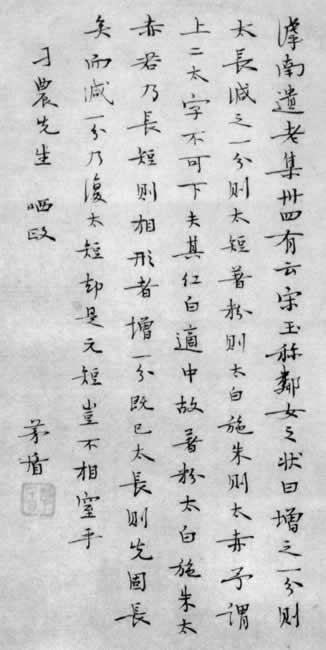 滹南遗老集卅四有云宋玉称邻女之状曰增之一分则
太长减之一分则太短著粉则太白施朱则太赤予谓
上二太字不可下夫其红白适中故着粉太白施朱太
赤若乃长短则相形者增一分既已太长则先固长
矣而减一分乃复太短却是元短岂不相窒乎
刁农先生 哂政
茅盾